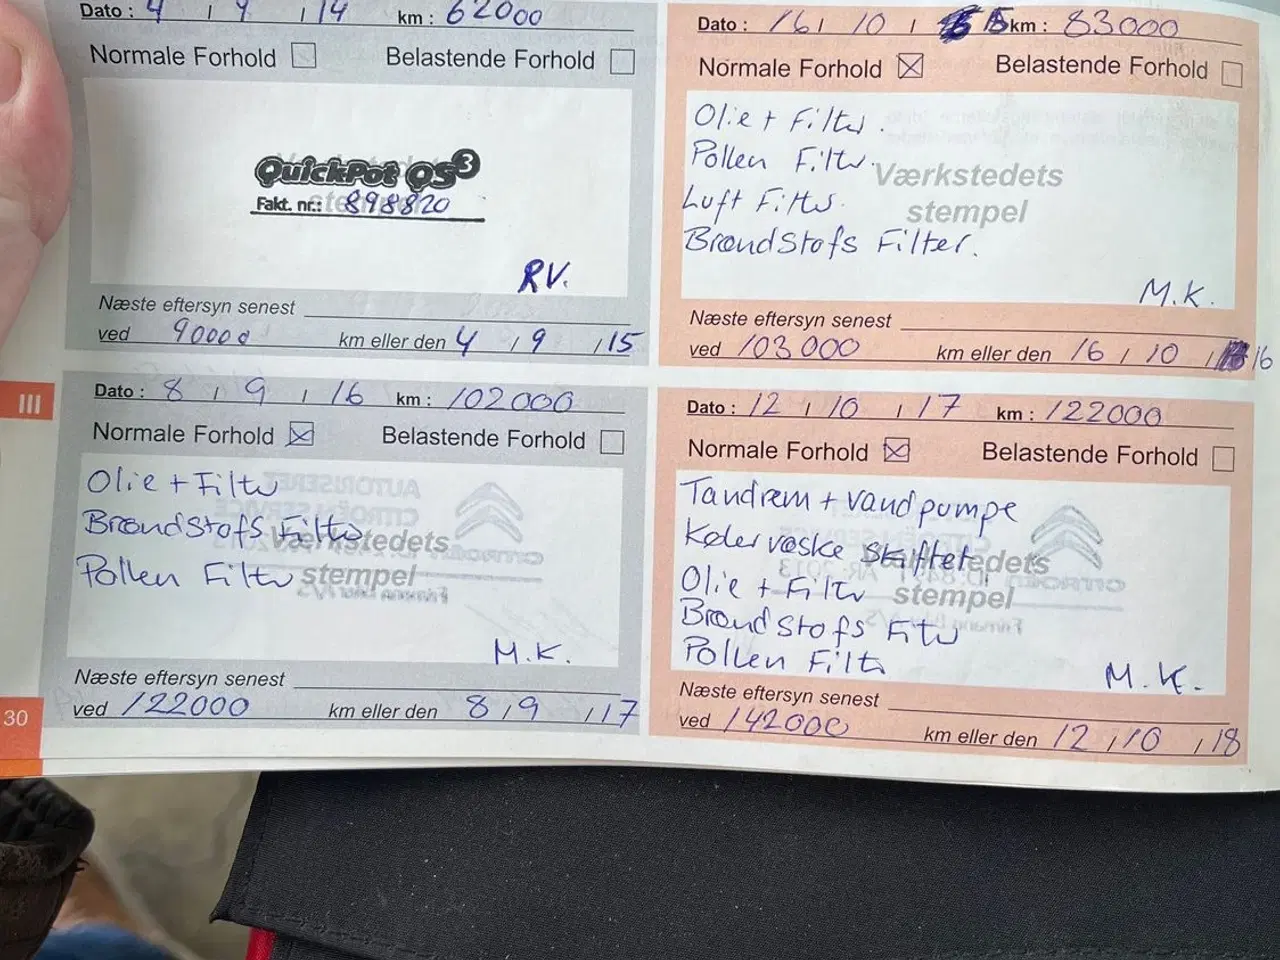 Dato : 4 / 9 / 14 km : 62000
Normale Forhold Belastende Forhold
QuickPot QS3
Fakt. nr.: 898820
RV.
Næste eftersyn senest
ved 90000 km eller den 4 / 9 / 15
Dato : 16 / 10 / 15 km : 83000
Normale Forhold Belastende Forhold
Olie + Filter.
Pollen Filter.
Værkstedets
Luft Filter.
stempel
Brændstofs Filter.
M.K.
Næste eftersyn senest
ved 103000 km eller den 16 / 10 / 16
III
Dato : 8 / 9 / 16 km : 102000
Normale Forhold Belastende Forhold
Olie + Filter
Brændstofs Filter
Værkstedets
Pollen Filter
stempel
M.K.
Næste eftersyn senest
ved 122000 km eller den 8 / 9 / 17
30
Dato : 12 / 10 / 17 km : 122000
Normale Forhold Belastende Forhold
Tandrem + vandpumpe
Kølervæske skiftet
Olie + Filter
stempel
Brændstofs Filter
Pollen Filter
M.K.
Næste eftersyn senest
ved 142000 km eller den 12 / 10 / 18